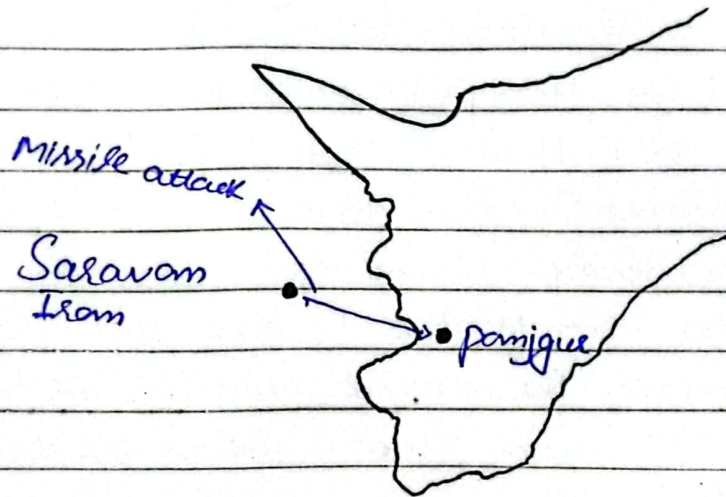 Missile attack
Saravan
Iran
panjgur